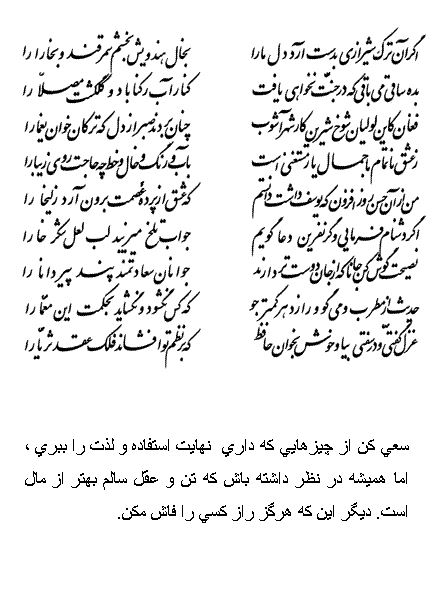 اگر آن ترک شیرازی بدست آرد دل ما را بخال هندویش بخشم سمرقند و بخارا را
بده ساقی می باقی که در جنّت نخواهی یافت کنار آب رکناباد و گلگشت مصلّا را
فغان کاین لولیان شوخ شیرین کار شهرآشوب چنان بردند صبر از دل که ترکان خوان یغما را
ز عشق ناتمام ما جمال یار مستغنی است بآب و رنگ و خال و خط چه حاجت روی زیبا را
من از آن حسن روزافزون که یوسف داشت دانستم که عشق از پرده عصمت برون آرد زلیخا را
اگر دشنام فرمایی و گر نفرین دعا گویم جواب تلخ میزیبد لب لعل شکرخا را
نصیحت گوش کن جانا که از جان دوست تر دارند جوانان سعادتمند پند پیر دانا را
حدیث از مطرب و می گو و راز دهر کمتر جو که کس نگشود و نگشاید بحکمت این معمّا را
غزل گفتی و در سفتی بیا و خوش بخوان حافظ که بر نظم تو افشاند فلک عقد ثریّا را
سعي کن از چيزهايي که داري نهايت استفاده و لذت را ببري ،
اما هميشه در نظر داشته باش که تن و عقل سالم بهتر از مال
است. ديگر اين که هرگز راز کسي را فاش مکن.